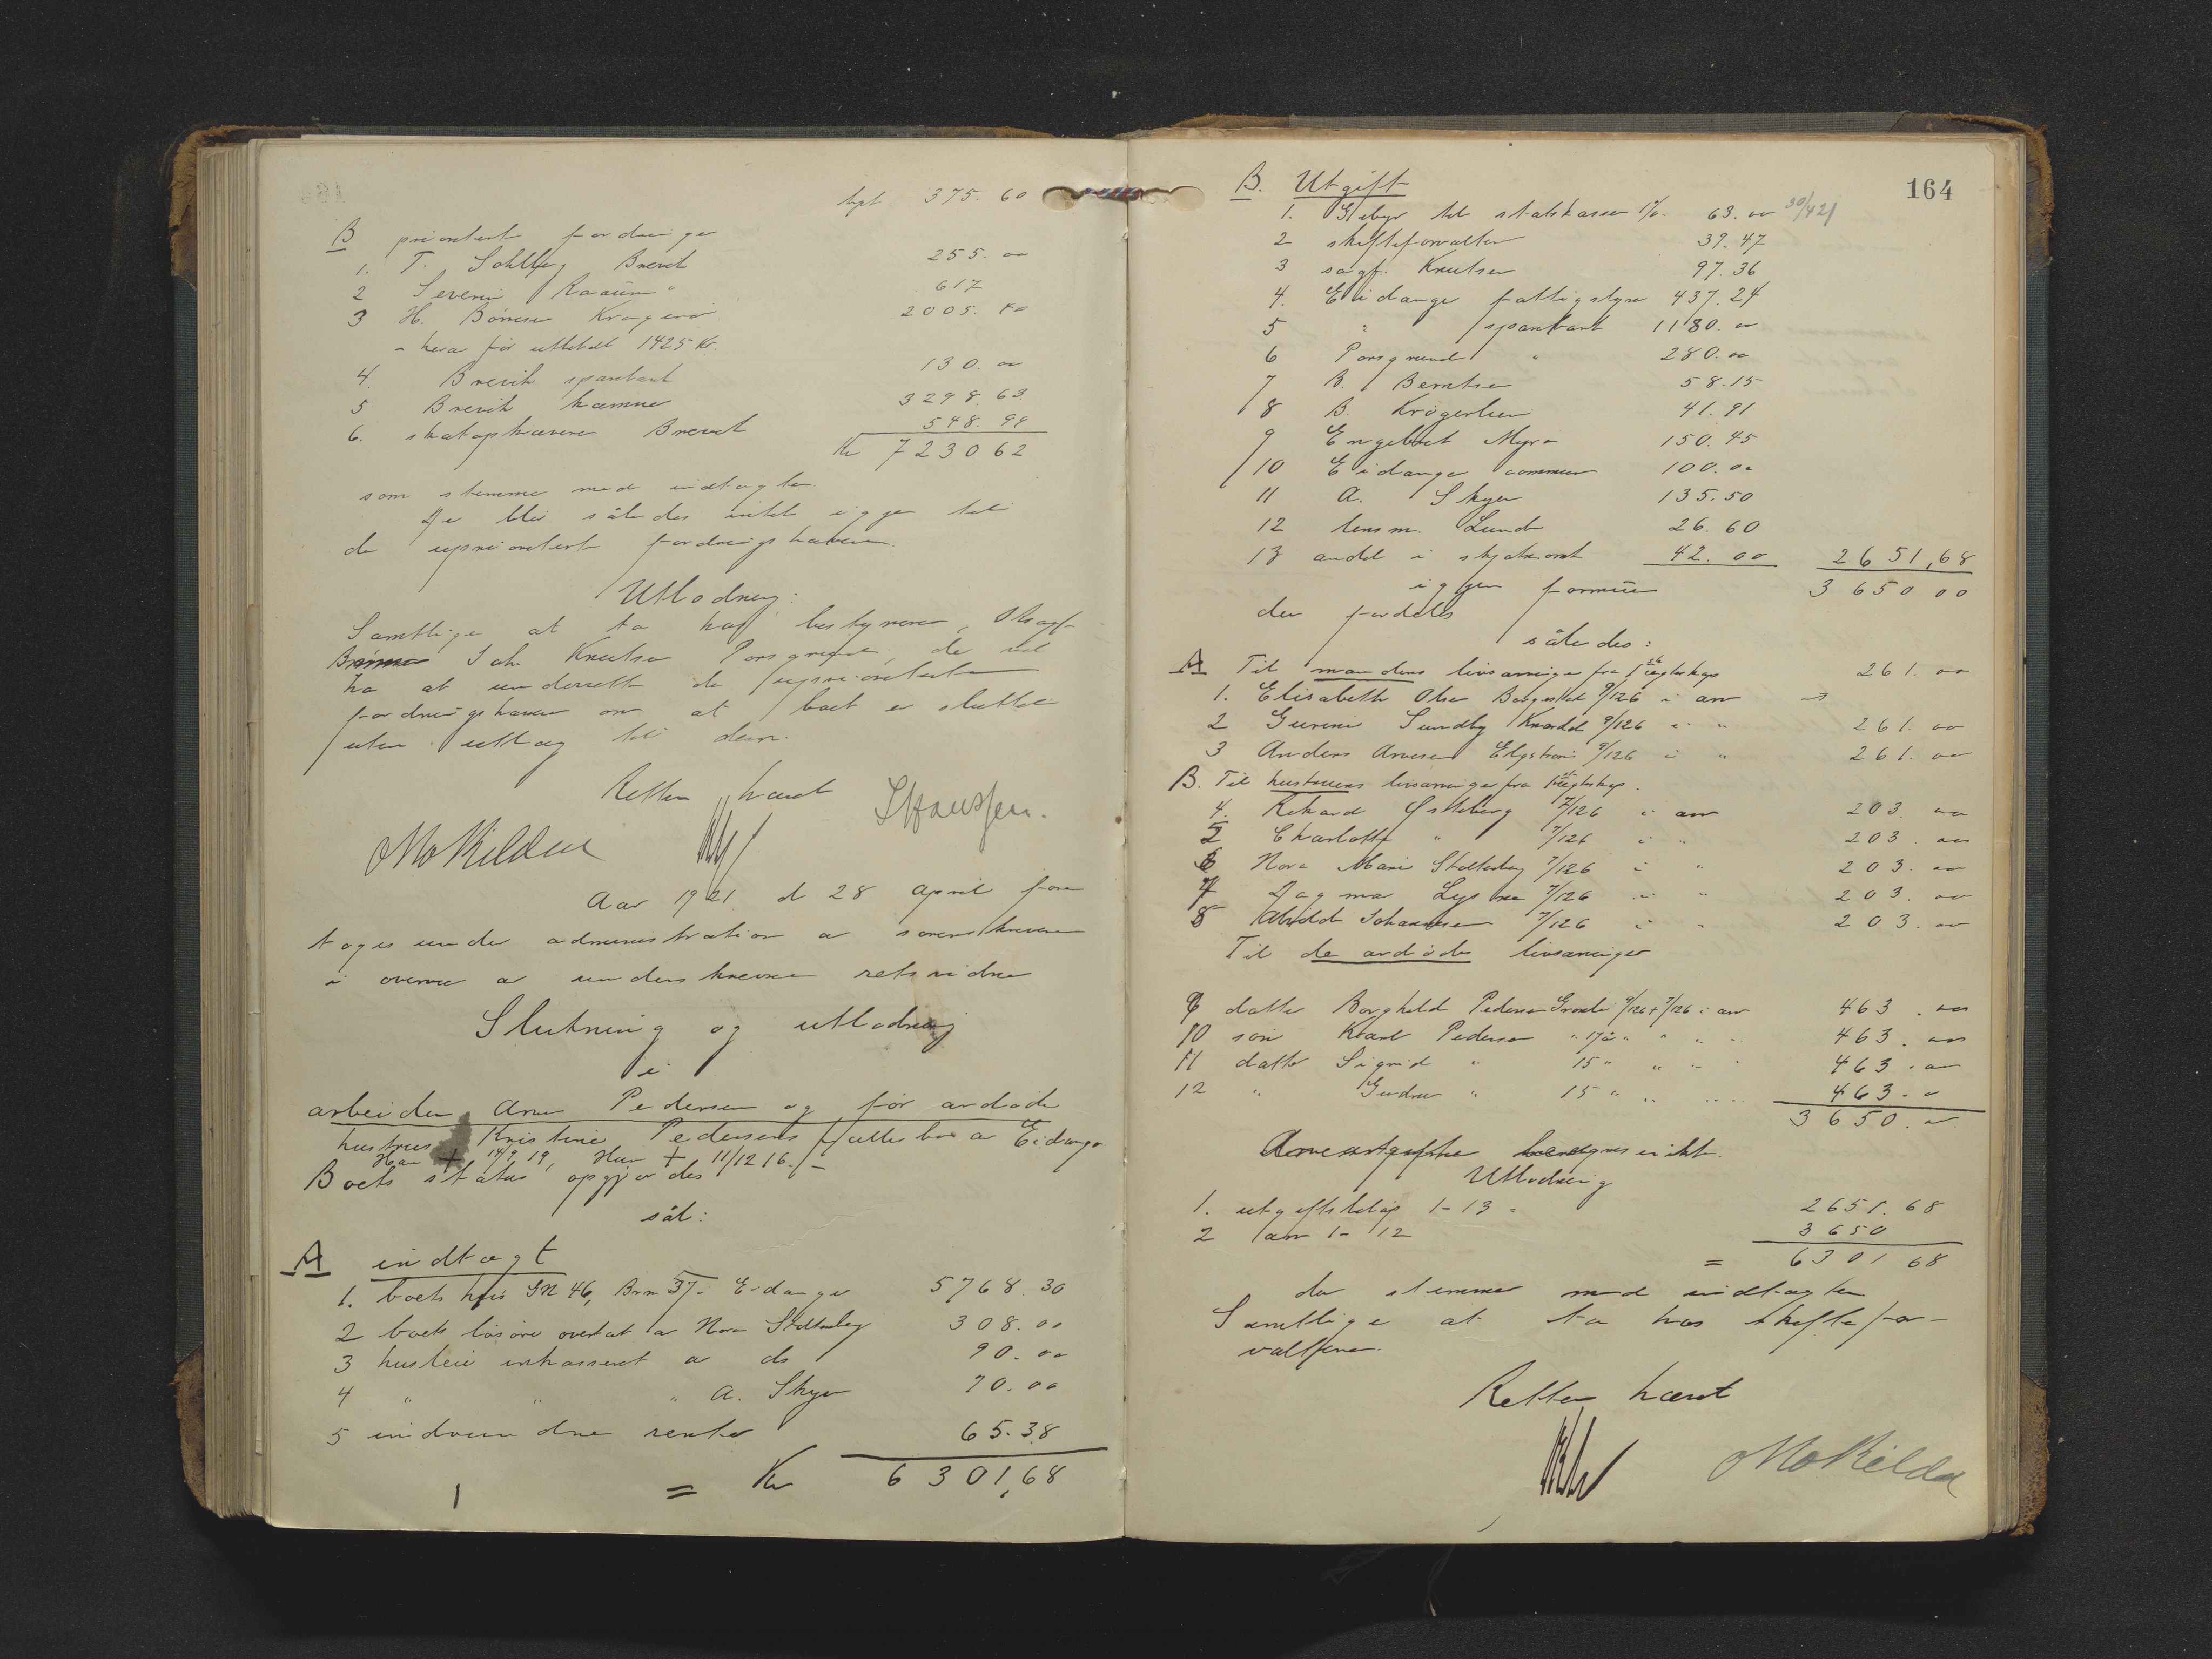 tpt 375.60
B prioritert fordringer
1. T. Sohlberg Brevik 255.00
2 Severin Raaum " 617
3 H. Børresen Kragerø 2005.00
- hera før uttalt 1425 Kr.
4. Brevik sparebank 130.00
5 Brevik kæmner 3298.63
6. skatopkræveren Brevik 548.99
Kr 7230 62
som stemmer med indtægten.
De blir således intet igjen til
de uprioritert fordringshavere.
Utlodning:
Samtlige at ta hos bestyreren, O.sagf.
Joh. Knutsen Porsgrund, de vil
ha at underrette de uprioriterte
fordringshavere om at boet er sluttet
uten utlæg til dem.
Retten hævet
Aar 1921 d 28 april fore
toges under administration av sorenskriveren
i overvær av underskrevne retsvidne
Slutning og utlodning
i
arbeider Arne Pedersen og før avdøde
hustru Kristine Pedersens fællesbo av Eidanger
Han + 14/9 19, Hun + 11/12 16. -
Boets status opgjordes
sål:
A indtægt
1. boets hus GN 46, Brn 37 i Eidanger 5768.30
2 boets løsøre overtat av Nora Stoltenberg 308.00
3 husleie inkassert av ds 90.00
4 " " " A. Skyer 70.00
5 indvundne renter 65.38
= Kr 6301,68
164
B. Utgift
1. Gebyr til statskassen 1% 63.00 30/421
2 skifteforvalter 39.47
3 sagf. Knutsen 97.36
4. Eidanger fattigstyre 437.24
5 " sparebank 1180.00
6 Porsgrund " 280.00
7 B. Berntsen 58.15
8 B. Krøgerlien 41.91
9 Engebret Myra 150.45
10 Eidanger commune 100.00
11 A. Skyer 135.50
12 lensm. Lund 26.60
13 andel i 42.00 2651,68
igjen formue 3650 00
der fordeles
således:
A Til mandens livsarvinger fra 1ste egteskap
1. Elisabeth Olsen Borgestad 9/126 i arv 261.00
2 Gurine Sundby 9/126 i " 261.00
3 Anders Arnesen 9/126 i " 261.00
B. Til hustruens livsarvinger fra 1ste egteskap.
4. Rikard Stoltenberg 7/126 i arv 203.00
5 Charlotte " 7/126 i " 203.00
6 Nora Marie Stoltenberg 7/126 i " 203.00
7 Dagmar 7/126 i " 203.00
8 Johannesen 7/126 i " 203.00
Til de avdødes livsarvinger
9 datter Borghild Pedersen 9/126 + 7/126 i arv 463.00
10 søn Knut Pedersen " 17 år " " " 463.00
11 datter Sigrid " 15 " " " 463.00
12 " Gudrun " 15 " " " 463.00
3650.00
Arveavgifte beregnes ei ikt.
Utlodning
1. utgiftsbeløp 1-13 - 2651.68
2 arv 1-12 3650
= 6301 68
der stemmer med indtægten
Samtlige at ta hos skiftefor-
valteren.
Retten hævet